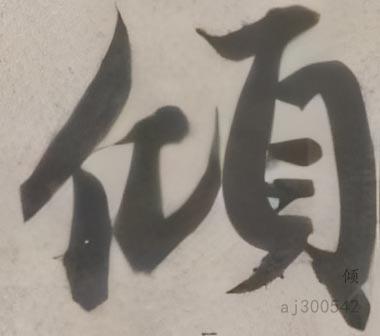 傾
倾
aj300542